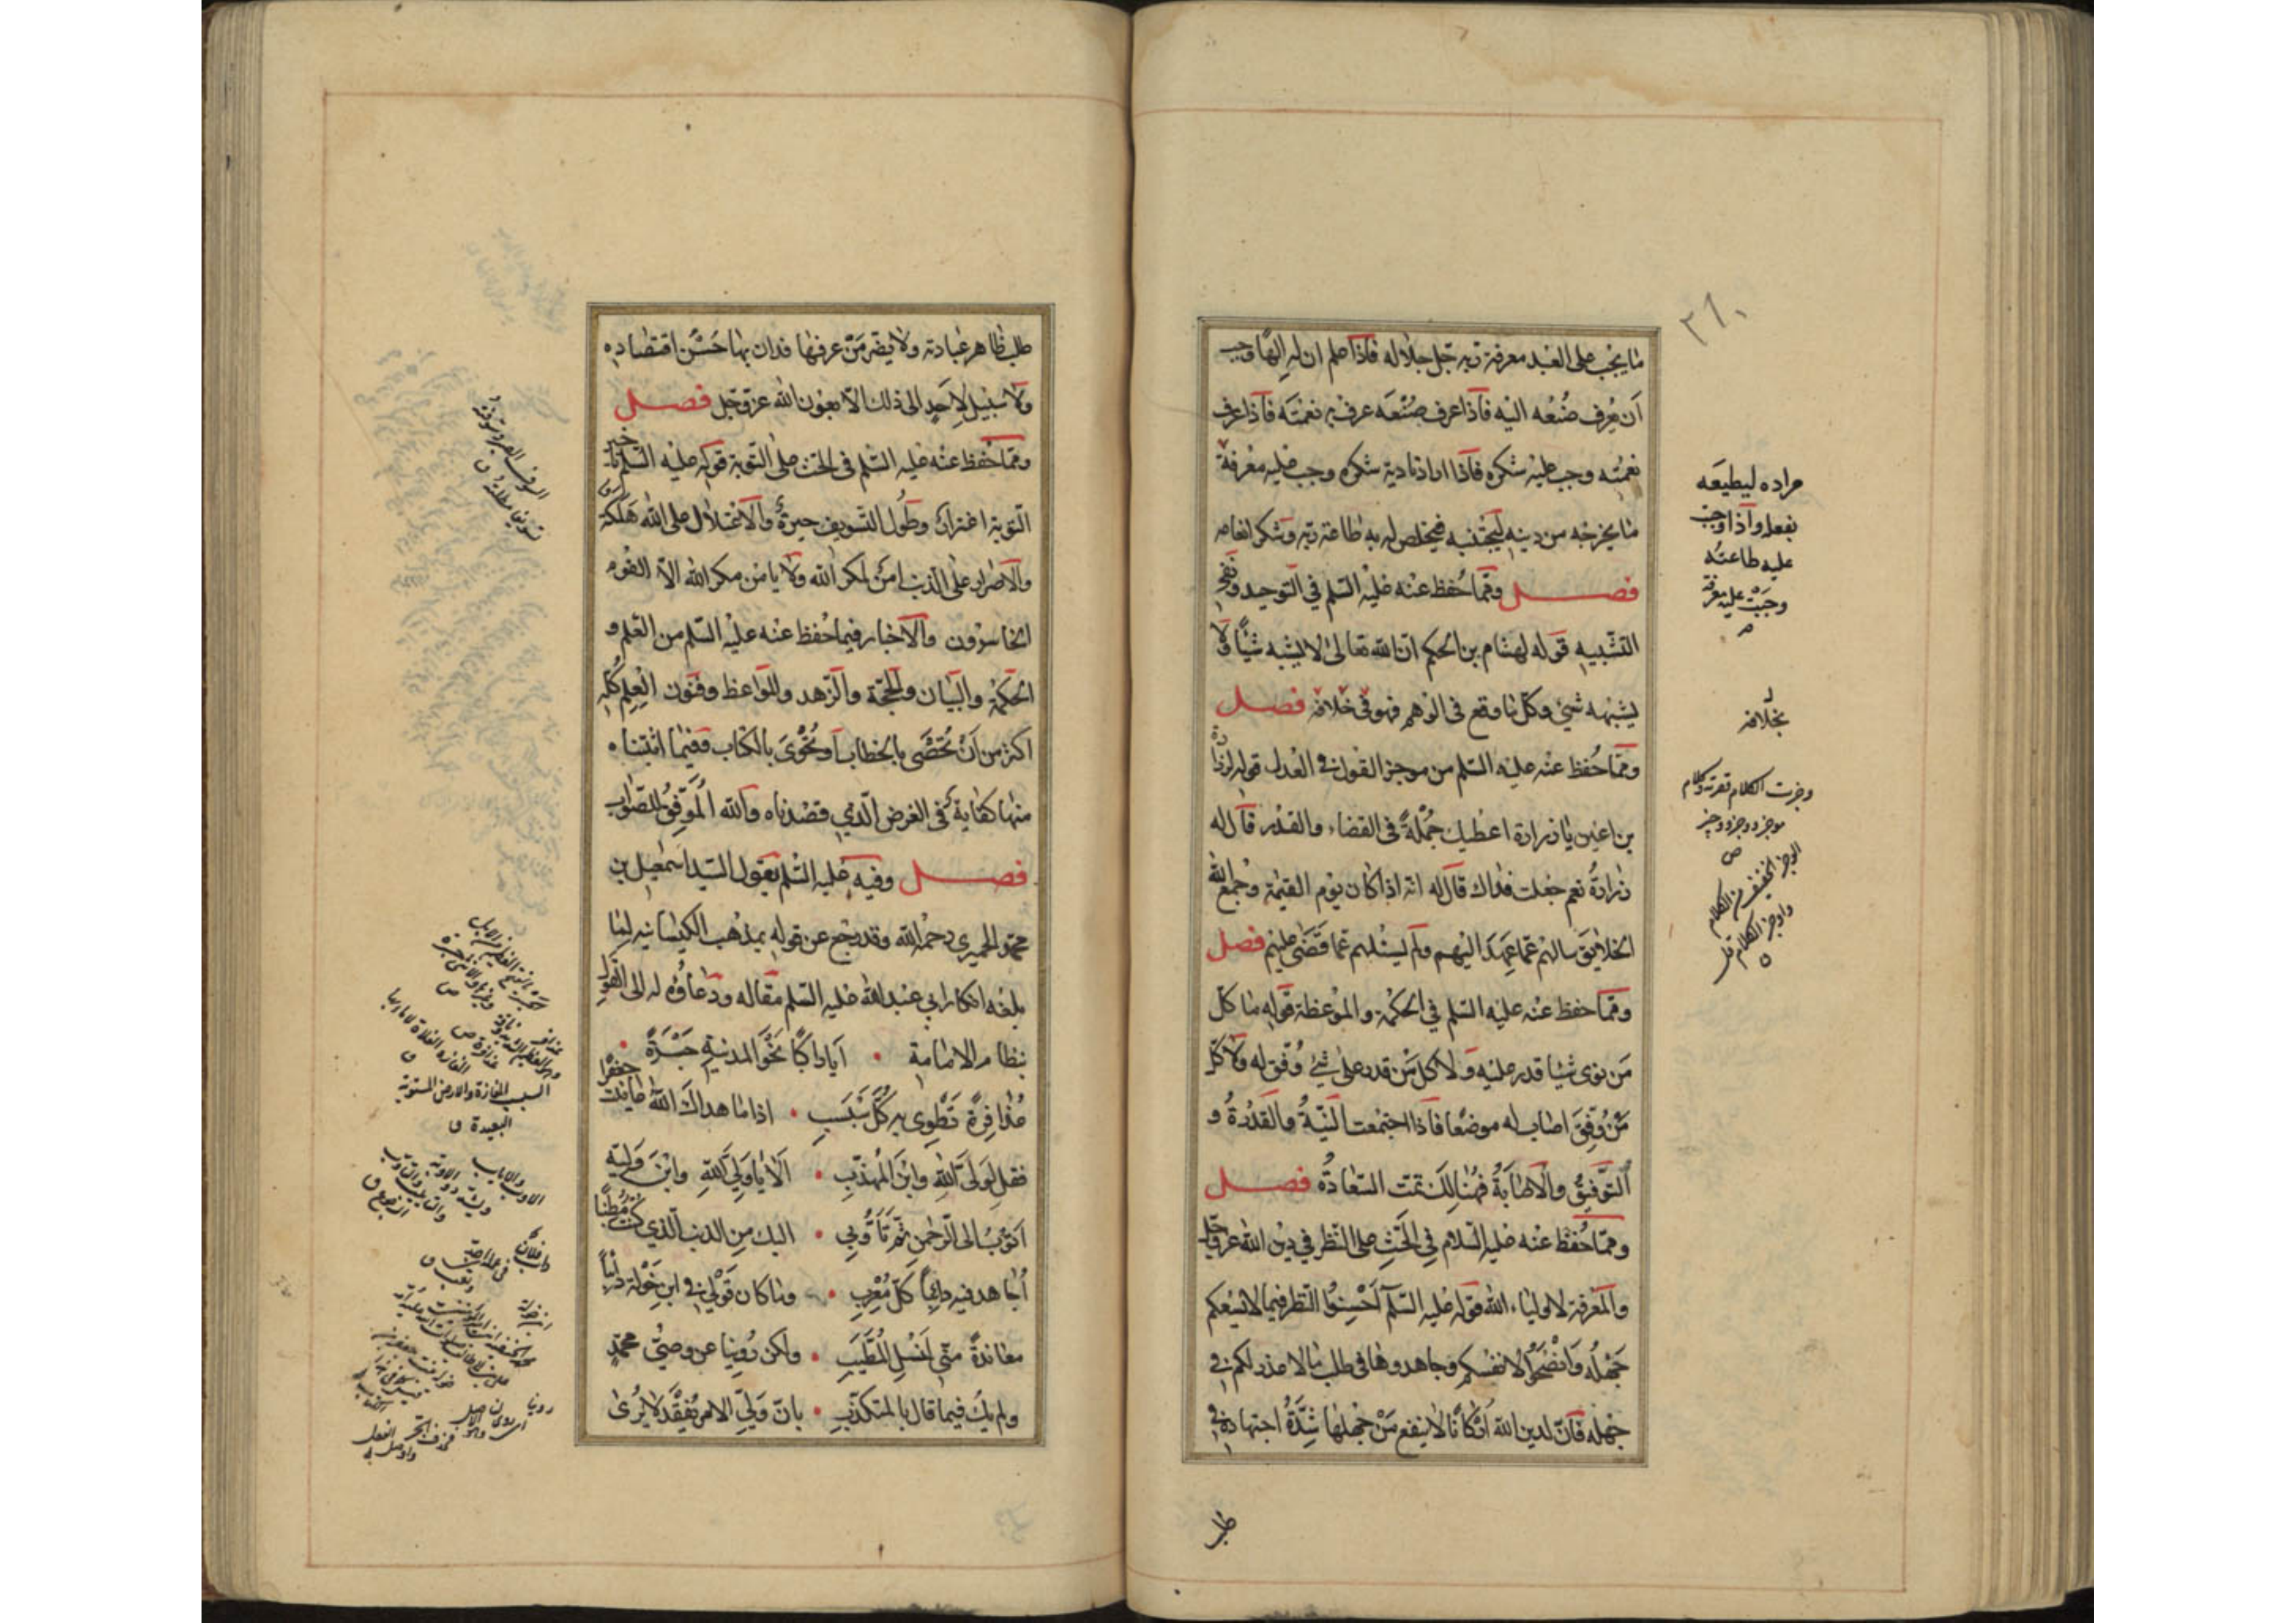 ما يجب على العبد معرفة ربه جل جلاله فاذا علم ان له الها وجب
ان يعرف صنعه اليه فاذا عرف صنعه عرف به نعمته فاذا عرف
نعمته وجب عليه شكره فاذا اراد تادية شكره وجب عليه معرفة
ما يخرجه من دينه ليجتنبه فيخلص له به طاعة ربه وشكر انعامه
فصل ومما حُفظ عنه عليه السّلم في التوحيد ونفي
التشبيه قوله لهشام بن الحكم ان الله تعالى لا يشبه شيئًا ولا
يشبهه شيئ وكل ما وقع في الوهم فهو في خلافه فصل
ومما حُفظ عنه عليه السلم من موجز القول في العدل قوله لزرارة
بن اعين يا زرارة اعطيك جُملةً في القضاء والقدر قال له
زرارةُ نعم جعلت فداك قال له انه اذا كان يوم القيمة وجمع الله
الخلايق سالهم عما عهد اليهم ولم يسئلهم عما قضى عليهم فصل
ومما حفظ عنه عليه السلم في الحكمة والموعظة قوله ما كل
من نوى شيئا قدر عليه ولا كل من قدر على شيئ وُفق له ولا كل
من وُفِقَ اصاب له موضعا فاذا اجتمعت النيةُ والقدرةُ و
التوفيقُ والاصابةُ فهنالك تمت السعادةُ فصل
ومما حُفظ عنه عليه السلام في الحَثِ على النظر في دين الله عز وجل
والمعرفة لاولياء الله قوله عليه السلم اَحْسِنوُا النظر فيما لا يسعكم
جَهْلُه وَانصَحُوا لانفسكم وجاهدوها في طلب ما لا عذر لكم في
جهله فان لدين الله اَرْكانًا لا ينفع مَنْ جهلها شِدَّةُ اجتهاده في
طلب
٢٦٠
مراده ليطيعَه
بفعله واذا وجبت
عليه طاعتُه
وجَبَتْ عليه معرفة
بخلافه
وجزت الكلام قصرته وكلام
موجز ووجز ووجيز
ص
الوجز الخفيف من الكلام
واوجز الكلام قل
طلب ظاهر عبادته ولا يضر مَنْ عرفها فدان بها حُسْن اقتصاده
ولا سَبيل لاِحدٍ الى ذلك الا بعون الله عز وجل فصل
ومما حُفظ عنه عليه السّلم في الحث على التوبة قوله عليه السلم تاخير
التوبة اغترار وطول التسويف حيرةٌ والاعتلال على الله هلكة
والاصرار على الذنب امنٌ لمكر الله ولا يامن مكر الله الا القوم
الخاسرون والاخبار فيما حُفظ عنه عليه السّلم من العلم و
الحكمة والبيان والحجة والزهد والمواعظ وفنون العِلم كلِه
اكثر من اَنْ تُحْصَى بالخطاب اَو تُحْوَى بالكتاب وفيما اثبتناه
منها كفايةٌ في الغرض الّذي قصدناه والله المُوَفِّقُ للصواب
فصل وفيه عليه السّلم يقول السّيد اسمعيل بن
محمد الحميري رحمه الله وقد رجع عن قوله بمذهب الكيسانيه لما
بلغه انكار ابي عبد الله عليه السّلم مقاله ودعاؤُه له الى القول
بنظام الامامة • اَيا راكبًا نَحْوَ المدينةِ جَسْرَةً •
عُذافِرةً تَطْوي به كُلَّ سَبْسَبِ • اذا ما هداك اللهُ عاينت جعفرا
فقل لِوَليّ اللهِ وابْنَ المُهذبِ • اَلا يا وليّ اللهِ وابْنَ وليّه
اَتوبُ الى الرَّحمنِ ثم تَاَوُّبي • اليك مِن الذنب الّذي كنت مُطنبًا
اُجاهد فيه دائمًا كلّ مُعْرِبِ • وما كان قَوْلي في ابن خَوْلة دائبًا
معاندةً منّي لِنَسْلِ المُطَيَّبِ • ولكن رُوينا عن وصيّ محمدٍ
ولم يك فيما قال بالمتكذّبِ • بان وَليّ الامر يُفقَد لا يُرى
السبسب المفازة والارض المستوية
البعيدة ق